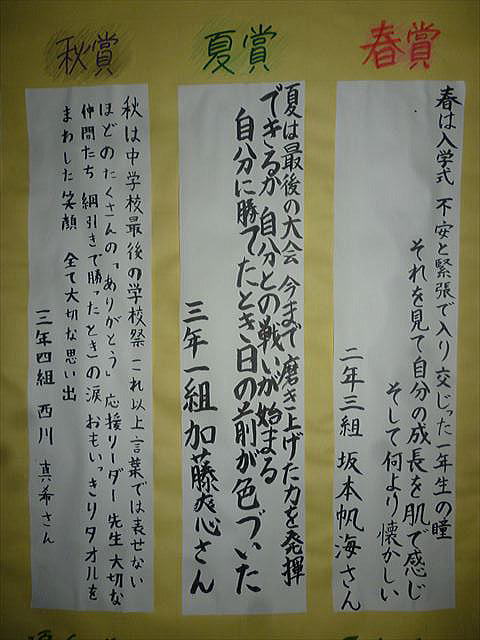 春賞
春は入学式 不安と緊張で入り交じった一年生の瞳
それを見て自分の成長を肌で感じ
そして何より懐かしい
二年三組 坂本帆海さん
夏賞
夏は最後の大会 今まで磨き上げた力を発揮
できるか 自分との戦いが始まる
自分に勝てたとき目の前が色づいた
三年一組 加藤爽心さん
秋賞
秋は中学校最後の学校祭 これ以上言葉では表せない
ほどのたくさんの「ありがとう」 応援リーダー 先生 大切な
仲間たち 綱引きで勝ったとき)の涙 おもいっきりタオルを
まわした笑顔 全て大切な思い出
三年四組 西川 真希さん